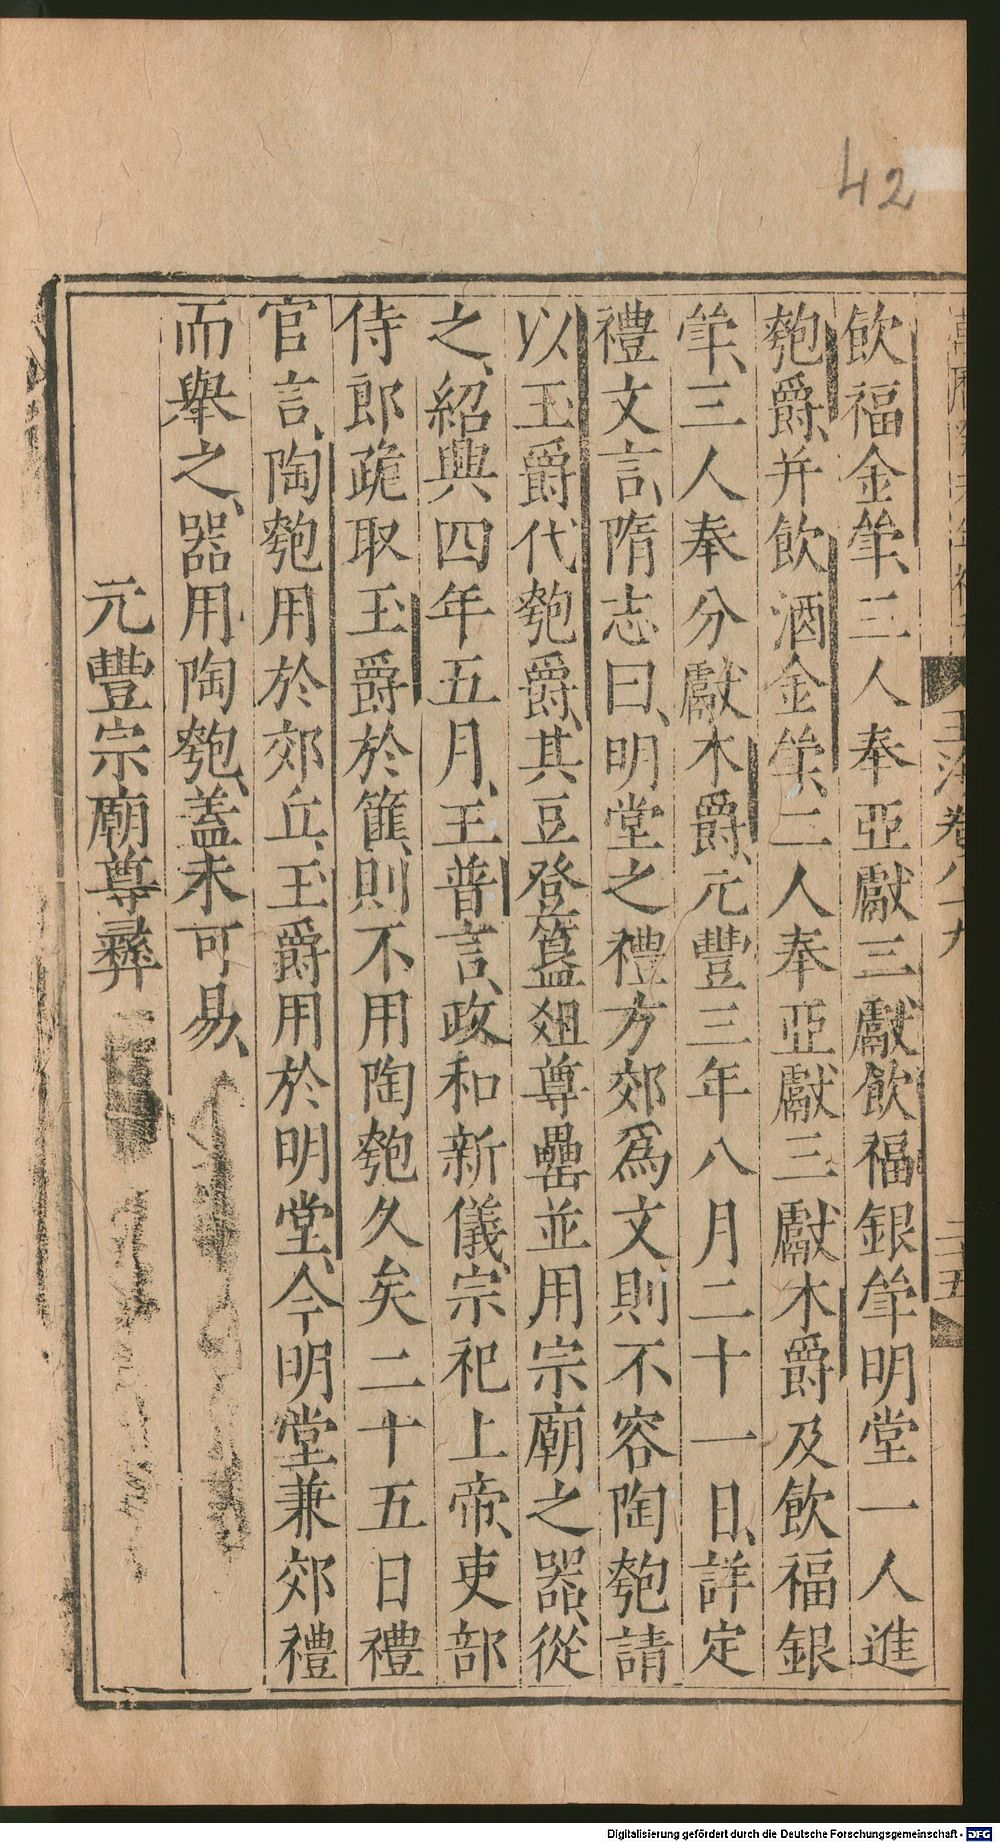 42
飲福金斝三人奉亞獻三獻飲福銀斝明堂一人進
匏爵并飲酒金斝二人奉亞獻三獻木爵及飲福銀
斝三人奉分獻木爵元豐三年八月二十一日詳定
禮文言隋志曰明堂之禮方郊爲文則不容陶匏請
以玉爵代匏爵其豆登簋俎尊罍並用宗廟之器從
之紹興四年五月王普言政和新儀宗祀上帝吏部
侍郎跪取玉爵於篚則不用陶匏久矣二十五日禮
官言陶匏用於郊丘玉爵用於明堂今明堂兼郊禮
而舉之器用陶匏蓋未可易
元豐宗廟尊彝
玉海卷八十九
三五
Digitalisierung gefördert durch die Deutsche Forschungsgemeinschaft - DFG